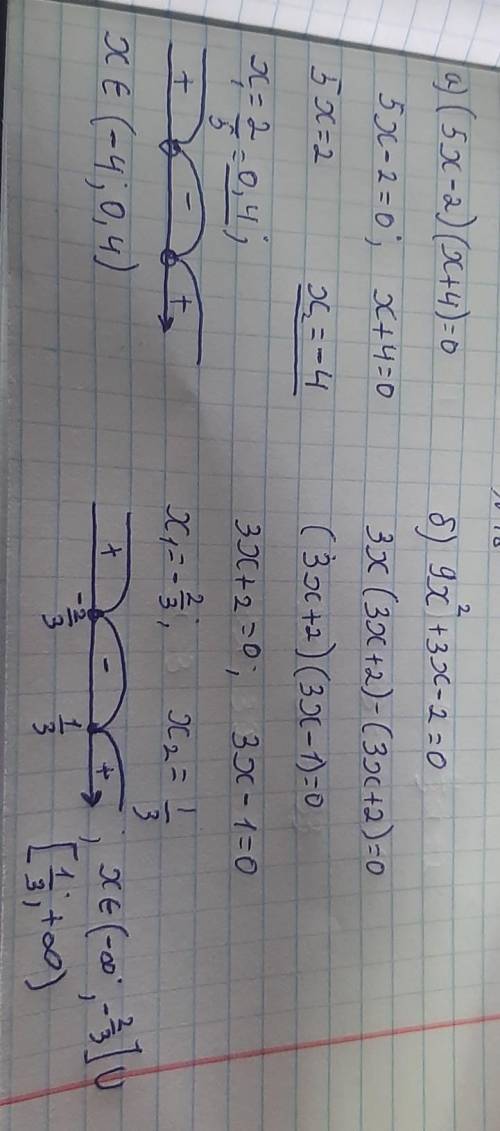 а) (5x-2)(x+4)=0
5x-2=0; x+4=0
5x=2
x₁=2/5=0,4; x₂=-4
+ - +
x∈(-4; 0,4)
б) 9x²+3x-2=0
3x(3x+2)-(3x+2)=0
(3x+2)(3x-1)=0
3x+2=0; 3x-1=0
x₁=-2/3; x₂=1/3
+ - +
-2/3 1/3
; x∈(-∞; -2/3]∪
[1/3; +∞)